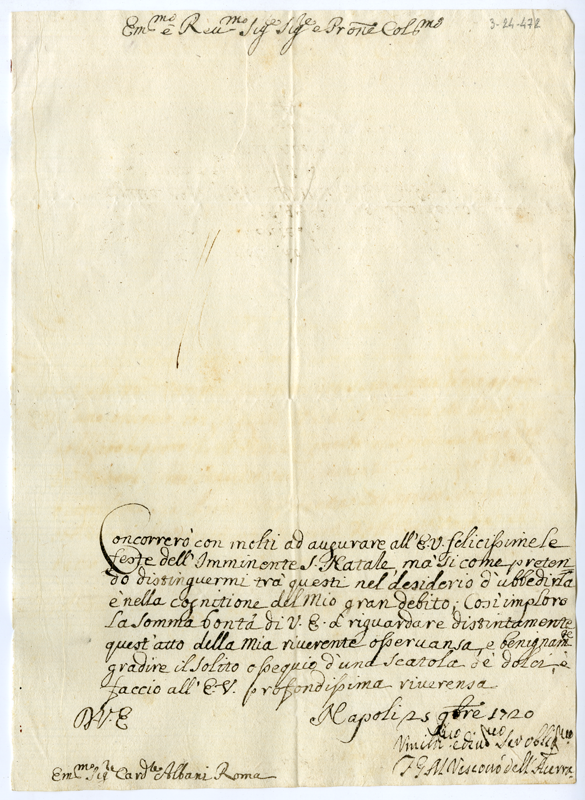 3-24-472
Em.mo e Reu.mo Sig.re Sig.re e Prone Col.mo
Concorrerò con molti ad augurare all'E.V. felicissime le
feste dell'Imminente S. Natale, mà sicome preten
do distinguermi trà questi nel desiderio d'ubbedirla
è nella cognitione del Mio gran debito; Così imploro
La somma bontà di V.E. à riguardare distintamente
quest'atto della Mia riverente osservansa, e benignam.te
gradire il solito ossequio d'una scatola dè dolci, e
faccio all'E.V. profondissima riverensa
D V.E
Napoli 25 9bre 1720
Em.mo Sig.re Card.le Albani Roma
Vescovo dell'Acerra